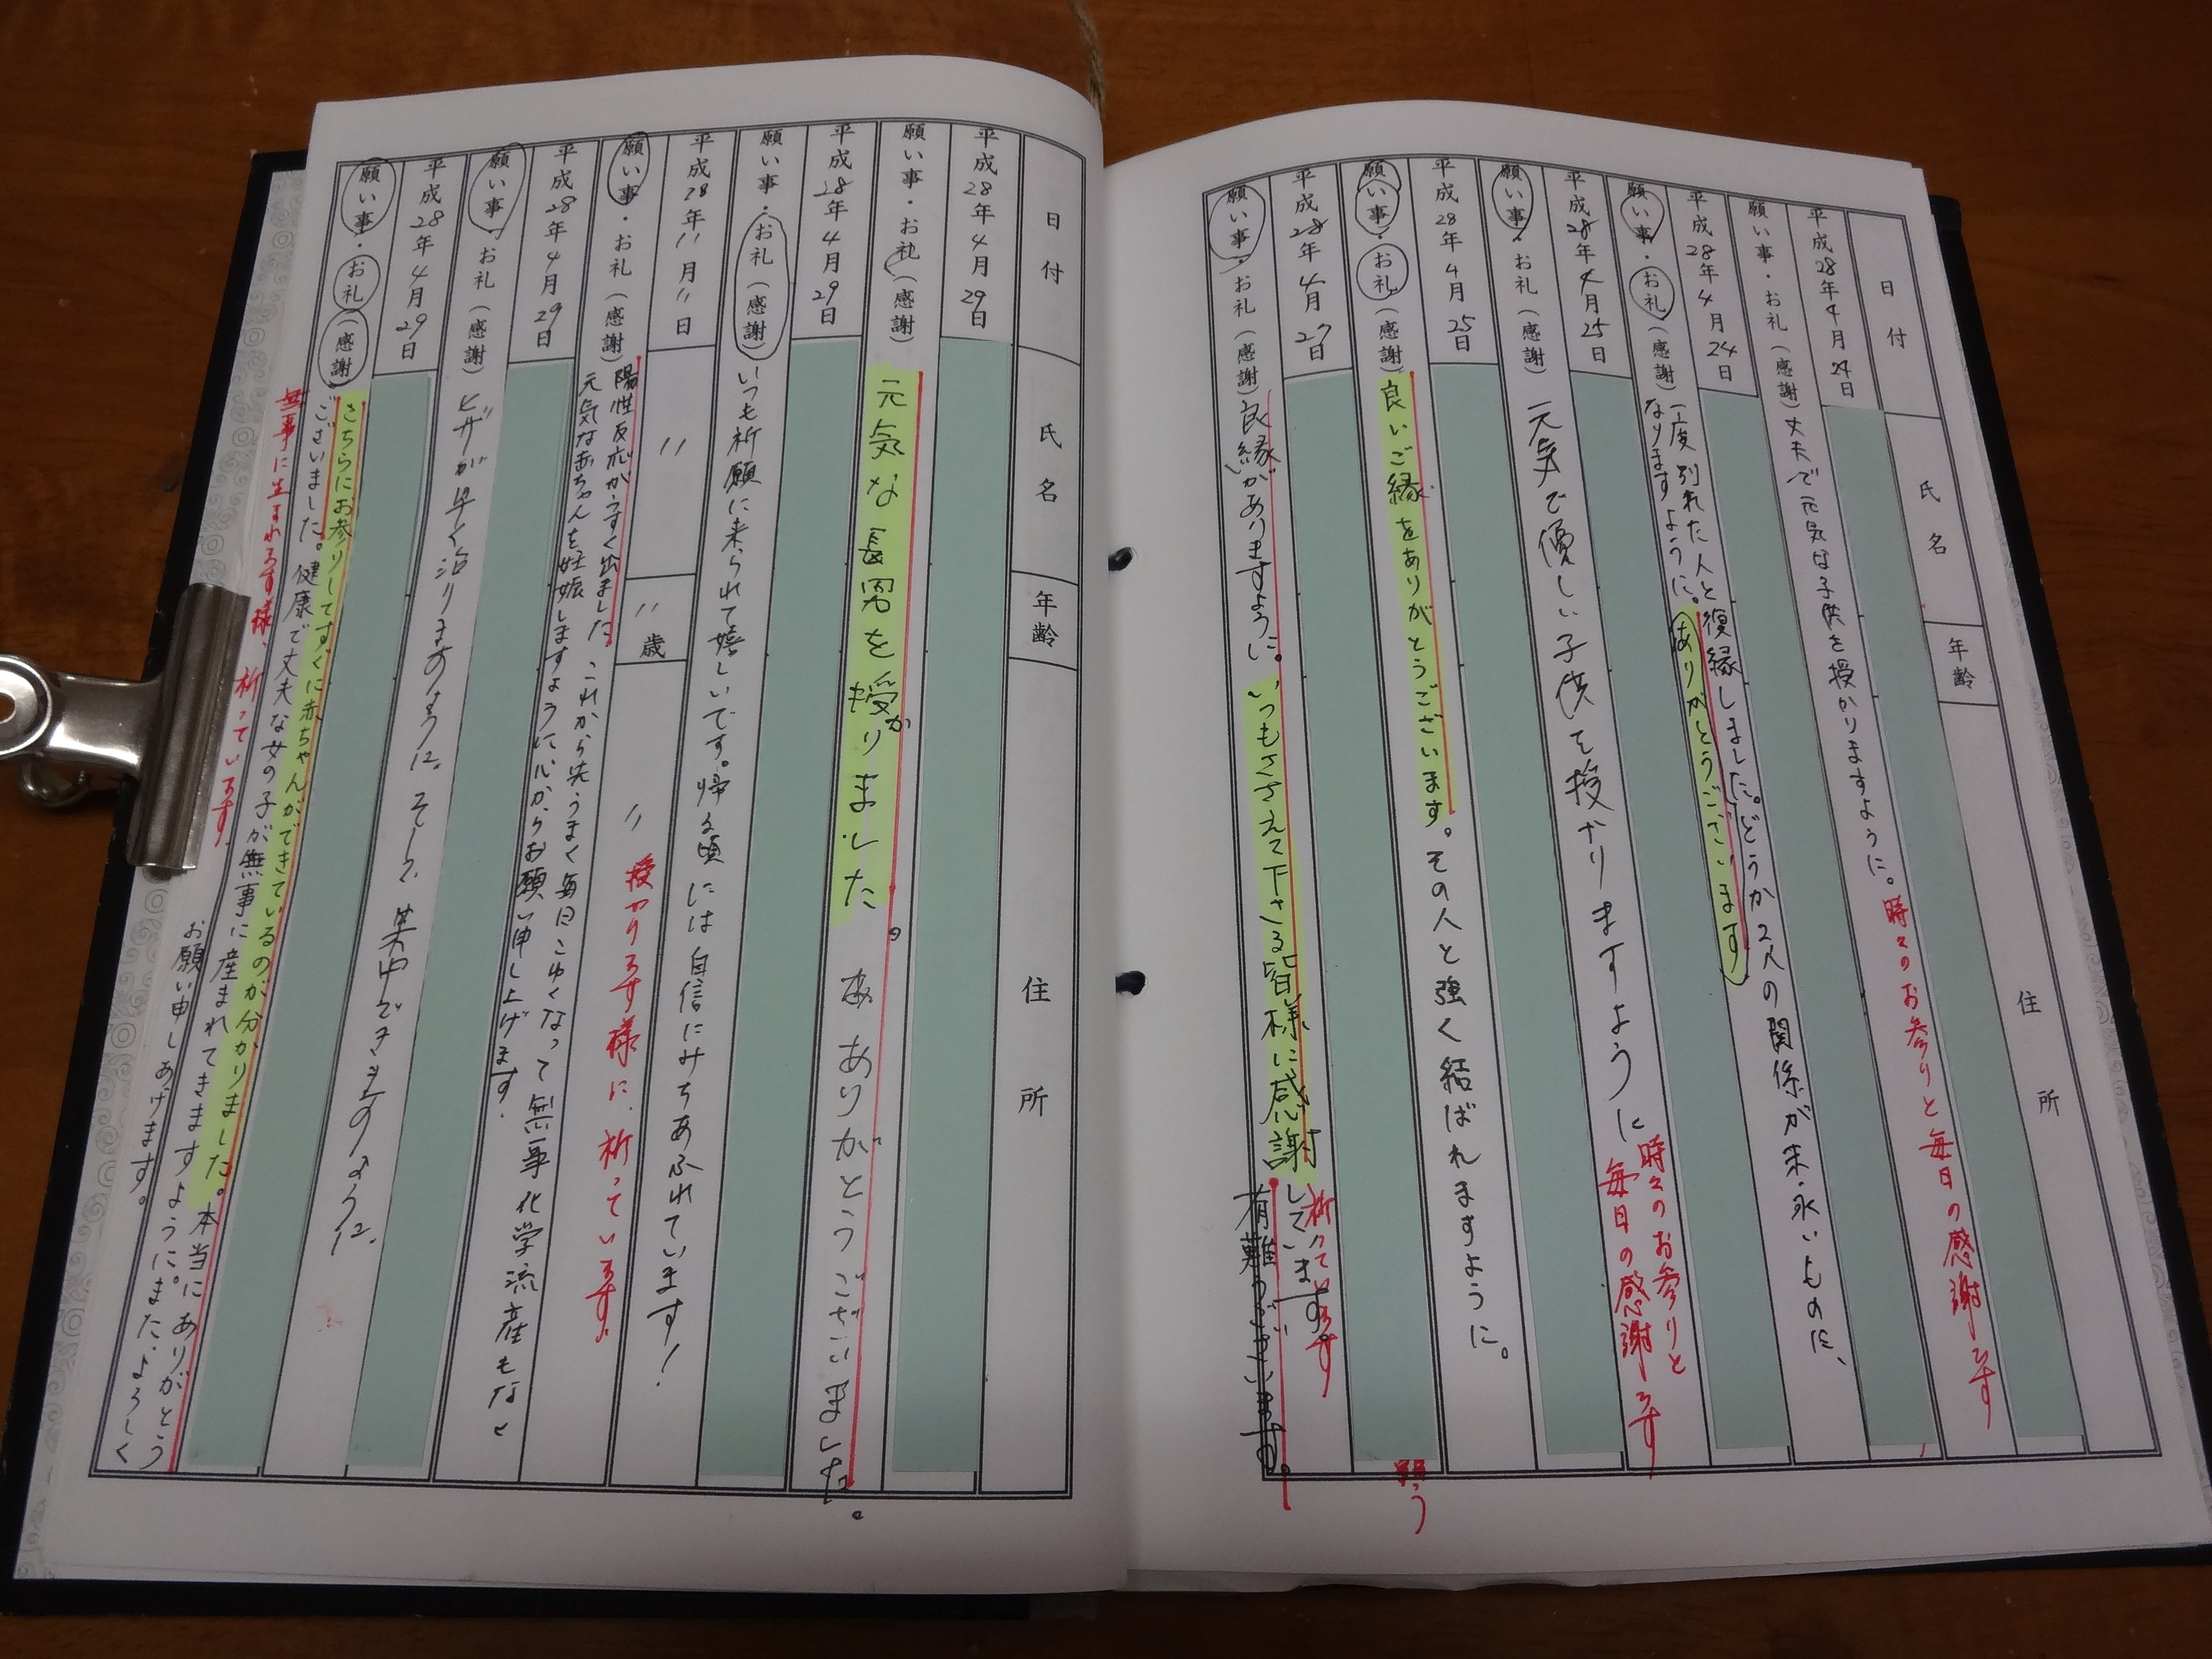 日付
氏名
年齢
住所
平成28年4月24日
願い事・お礼(感謝)
丈夫で元気な子供を授かりますように。
時々のお参りと毎日の感謝です
平成28年4月24日
願い事・お礼(感謝)
一度別れた人と復縁しました。どうか2人の関係が末永いものに、
なりますように。ありがとうございます
平成28年4月25日
願い事・お礼(感謝)
元気で優しい子供を授かりますように
時々のお参りと
毎日の感謝です
平成28年4月25日
願い事・お礼(感謝)
良いご縁をありがとうございます。その人と強く結ばれますように。
平成28年4月27日
願い事・お礼(感謝)
良縁がありますように。いつもささえて下さる皆様に感謝しています。
有難うございます。
祈っています
日付
氏名
年齢
住所
平成28年4月29日
願い事・お礼(感謝)
元気な長男を授かりました。ありがとうございました。
平成28年4月29日
願い事・お礼(感謝)
いつも祈願に来られて嬉しいです。帰る頃には自信にみちあふれています!
平成28年〃月〃日
〃
〃歳
〃
授かります様に、祈っています。
願い事・お礼(感謝)
陽性反応がうすく出ました これから先うまく毎日こゆくなって無事化学流産もなく
元気なあちゃんを妊娠しますように心からお願い申し上げます.
平成28年4月29日
願い事・お礼(感謝)
ヒザが早く治りますように。そして、集中できますように。
平成28年4月29日
願い事・お礼(感謝)
さちらにお参りしてすぐに赤ちゃんができているのが分かりました。本当にありがとう
ございました。健康で丈夫な女の子が無事に産まれてきますように。またよろしく
お願い申しあげます。
無事に生まれます様、祈っています。